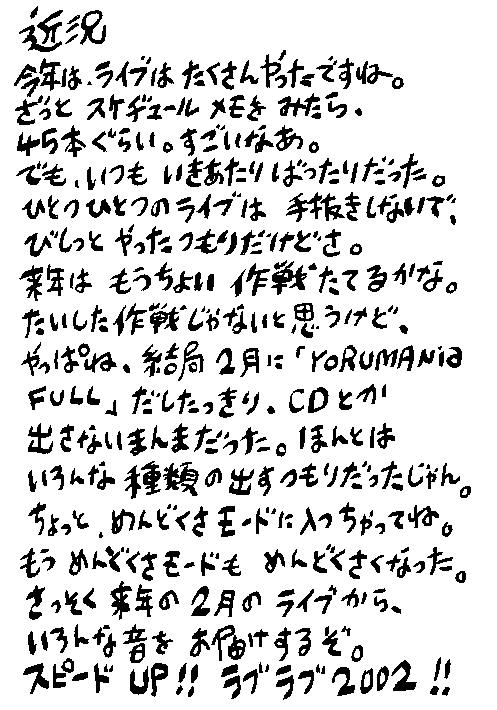 近況
今年は、ライブはたくさんやったですね。
ざっと スケヂュール メモを みたら、
45本ぐらい。すごいなあ。
でも、いつも いきあたりばったりだった。
ひとつひとつのライブは 手抜きしないで、
びしっと やったつもりだけどさ。
来年は もうちょい 作戦たてるかな。
たいした作戦じゃないと思うけど、
やっぱね、結局2月に「YORUMANIa
FULL」だしたっきり、CDとか
出さないまんまだった。ほんとは
いろんな種類の出すつもりだったじゃん。
ちょっと、めんどくさモードに入っちゃってね。
もう めんどくさモードも めんどくさくなった。
さっそく来年の2月のライブから、
いろんな音を お届けするぞ。
スピード UP!! ラブラブ2002!!